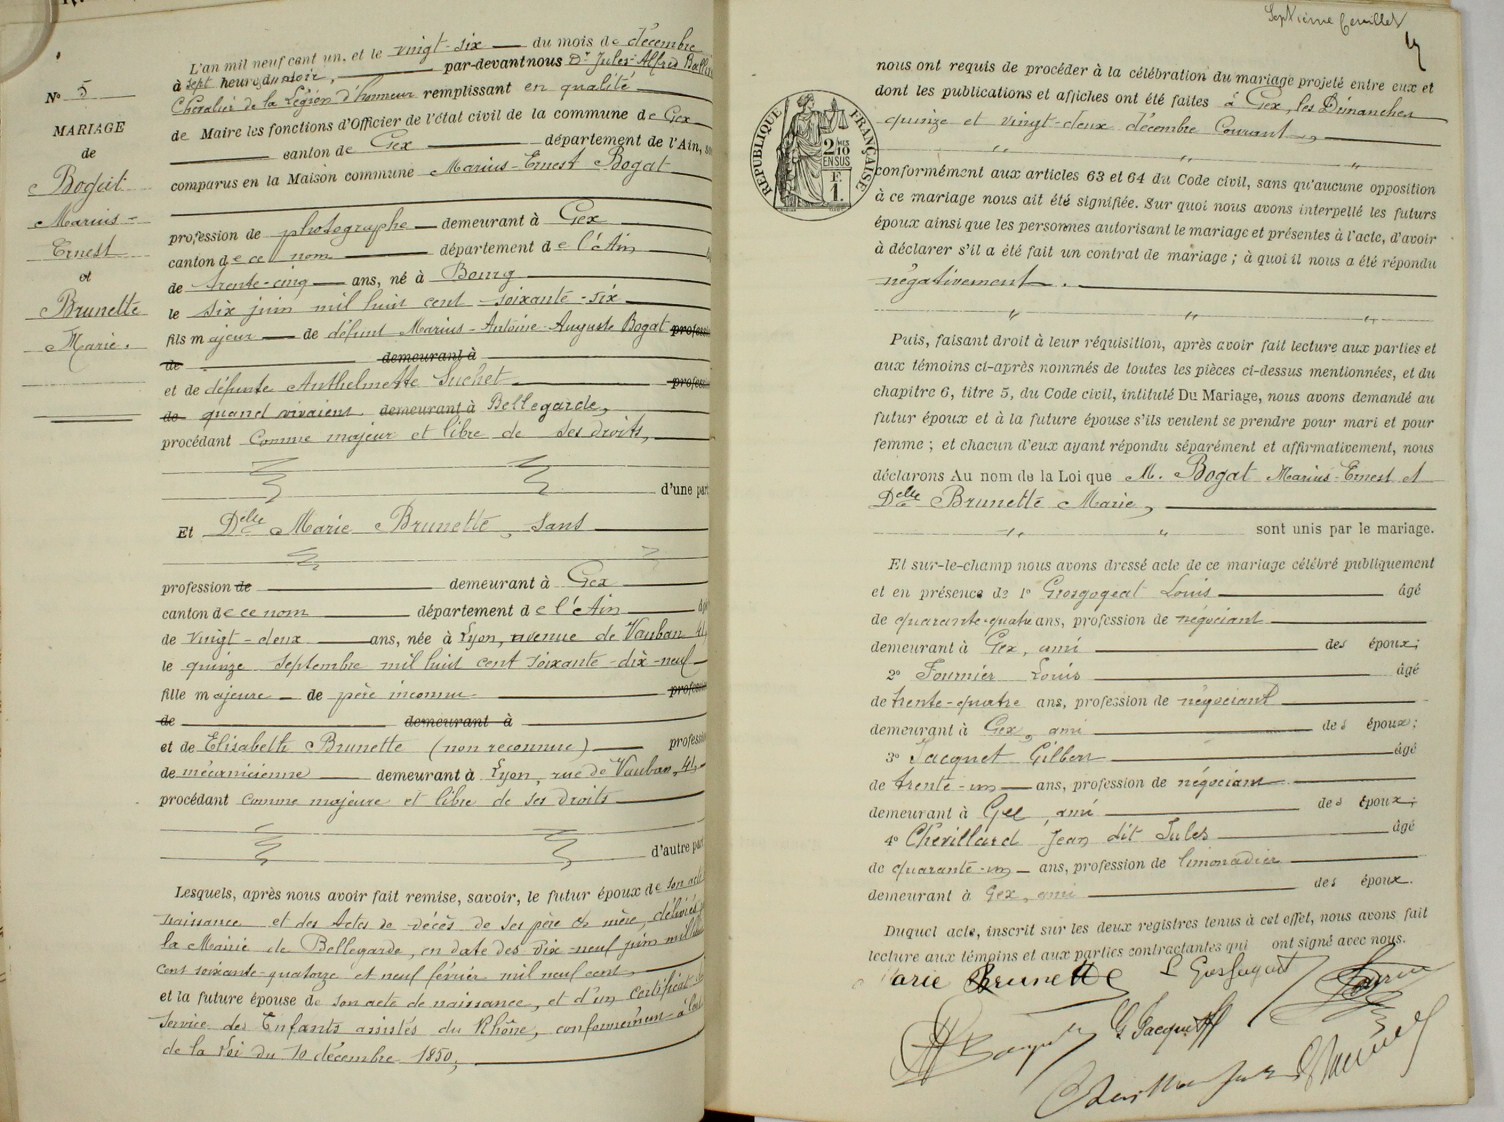 N° 5
MARIAGE
de
Bogat
Marius-
Ernest
et
Brunette
Marie.
L'an mil neuf cent un, et le vingt-six du mois de décembre
à sept heures du soir, par-devant nous Dr Jules-Alfred
Chevalier de la Légion d'honneur remplissant en qualité
de Maire les fonctions d'Officier de l'état civil de la commune de Gex
canton de Gex département de l'Ain,
comparus en la Maison commune Marius-Ernest Bogat
profession de photographe demeurant à Gex
canton de ce nom département de l'Ain
de trente-cinq ans, né à Bourg
le six juin mil huit cent soixante-six
fils majeur de défunt Marius-Antoine-Auguste Bogat
de demeurant à
et de défunte Anthelmette Suchet
de quand vivaient demeurant à Bellegarde,
procédant comme majeur et libre de ses droits,
d'une part
Et Delle Marie Brunette, sans
profession de demeurant à Gex
canton de ce nom département de l'Ain
de vingt-deux ans, née à Lyon, avenue de Vauban 41,
le quinze septembre mil huit cent soixante-dix-neuf
fille majeure de père inconnu
de demeurant à
et de Elisabeth Brunette (non reconnue) profession
de mécanicienne demeurant à Lyon, rue de Vauban, 41,
procédant comme majeure et libre de ses droits
d'autre part
Lesquels, après nous avoir fait remise, savoir, le futur époux de son acte
naissance et des Actes de décès de ses père & mère, délivrés
la Mairie de Bellegarde, en date des dix-neuf juin mil
cent soixante-quatorze et neuf février mil neuf cent,
et la future épouse de son acte de naissance, et d'un certificat
service des Enfants assistés du Rhône, conformément à
de la Loi du 10 décembre 1850,
Septième feuillet
RÉPUBLIQUE FRANÇAISE
2/10
EN SUS
F.
1.
nous ont requis de procéder à la célébration du mariage projeté entre eux et
dont les publications et affiches ont été faites à Gex, les Dimanches
quinze et vingt-deux décembre Courant,
conformément aux articles 63 et 64 du Code civil, sans qu'aucune opposition
à ce mariage nous ait été signifiée. Sur quoi nous avons interpellé les futurs
époux ainsi que les personnes autorisant le mariage et présentes à l'acte, d'avoir
à déclarer s'il a été fait un contrat de mariage ; à quoi il nous a été répondu
négativement.
Puis, faisant droit à leur réquisition, après avoir fait lecture aux parties et
aux témoins ci-après nommés de toutes les pièces ci-dessus mentionnées, et du
chapitre 6, titre 5, du Code civil, intitulé Du Mariage, nous avons demandé au
futur époux et à la future épouse s'ils veulent se prendre pour mari et pour
femme ; et chacun d'eux ayant répondu séparément et affirmativement, nous
déclarons Au nom de la Loi que M. Bogat Marius-Ernest et
Delle Brunette Marie,
sont unis par le mariage.
Et sur-le-champ nous avons dressé acte de ce mariage célébré publiquement
et en présence de 1° Grosgogeat Louis âgé
de quarante-quatre ans, profession de négociant
demeurant à Gex, ami des époux;
2° Fournier Louis âgé
de trente-quatre ans, profession de négociant
demeurant à Gex, ami des époux;
3° Jacquet Gilbert âgé
de trente-un ans, profession de négociant
demeurant à Gex, ami des époux;
4° Chevillard Jean dit Jules âgé
de quarante-un ans, profession de limonadier
demeurant à Gex, ami des époux.
Duquel acte, inscrit sur les deux registres tenus à cet effet, nous avons fait
lecture aux témoins et aux parties contractantes qui ont signé avec nous.
Marie Brunette
G Jacquet